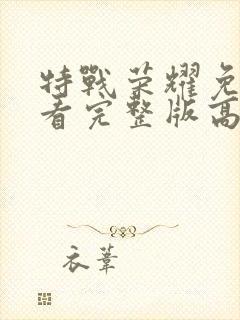 特戰荣耀免
看完整版高
衣葦